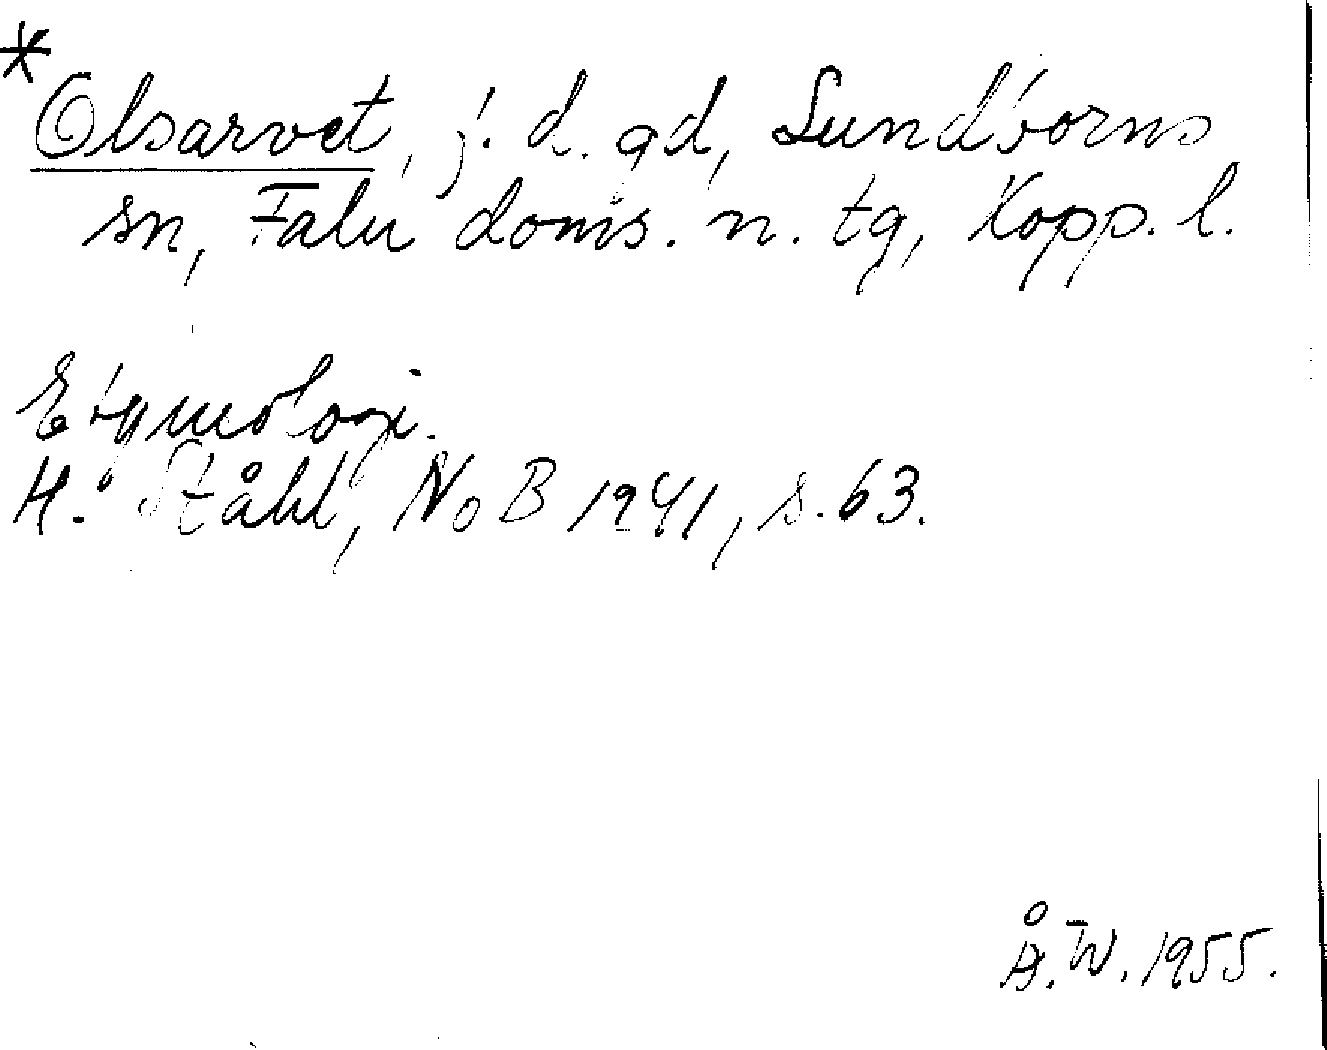 *
Olsarvet, j. d. gd, Sundborns
sn, Falu doms. n. tg, Kopp. l.
Etymologi.
H. Ståhl, NoB 1941, s. 63.
Å. W. 1955.